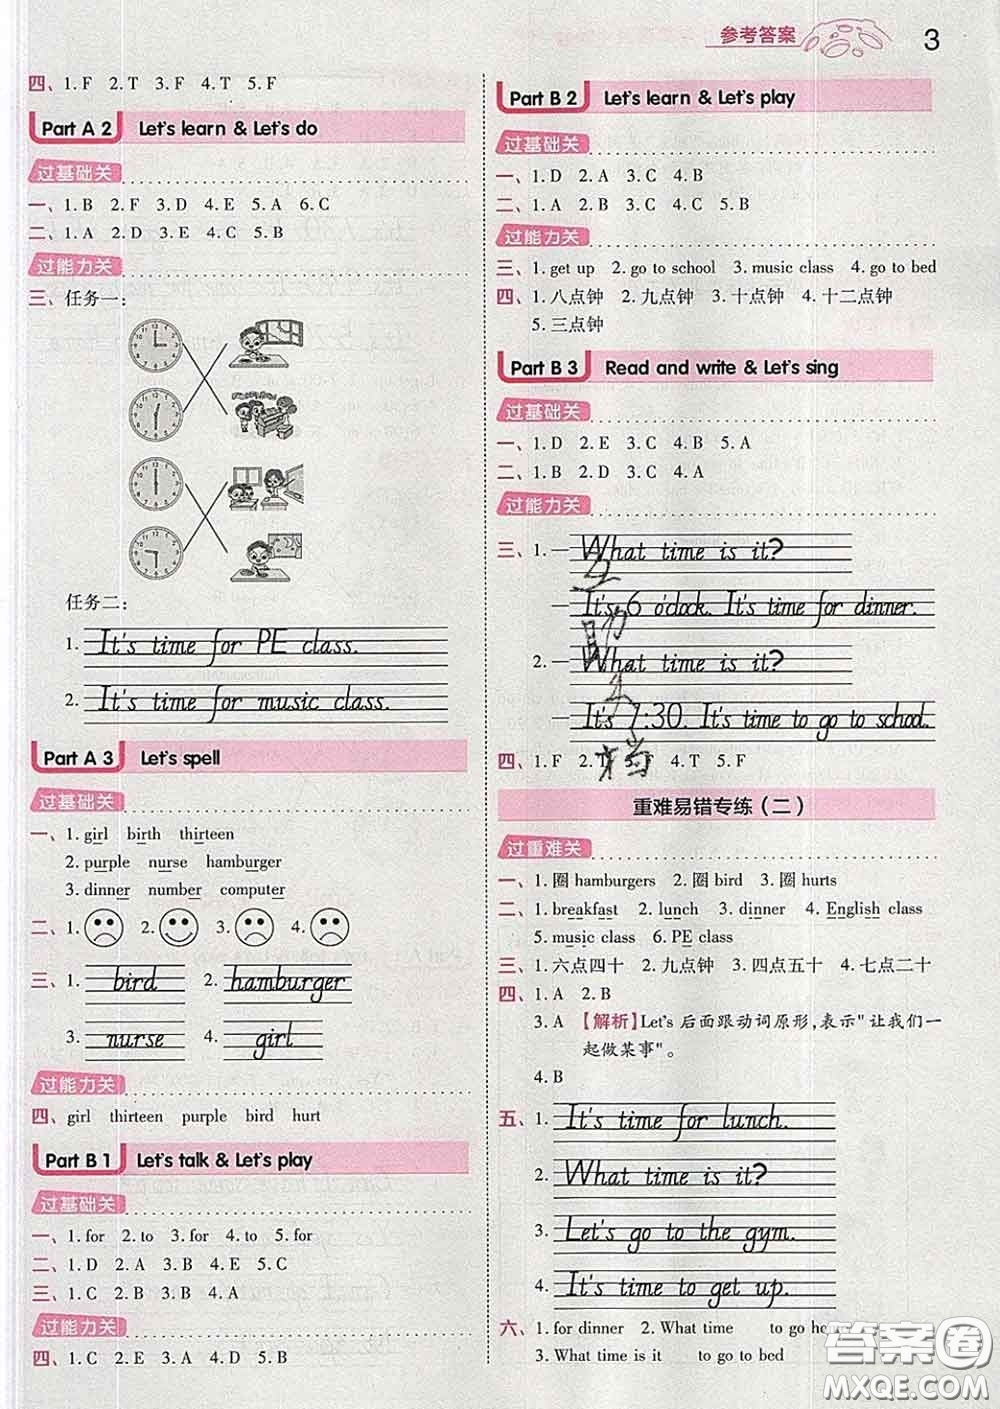 参考答案
3
四、1.F 2.T 3.F 4.T 5.F
Part A 2 Let's learn & Let's do
过基础关
一、1.B 2.F 3.D 4.E 5.A 6.C
二、1.A 2.D 3.E 4.C 5.B
过能力关
三、任务一:
任务二:
1. It's time for PE class.
2. It's time for music class.
Part A 3 Let's spell
过基础关
一、1. girl birth thirteen
2. purple nurse hamburger
3. dinner number computer
二、1. 2. 3. 4.
三、1. bird 2. hamburger
3. nurse 4. girl
过能力关
四、girl thirteen purple bird hurt
Part B 1 Let's talk & Let's play
过基础关
一、1. for 2. to 3. for 4. to 5. for
二、1. D 2. A 3. B 4. E 5. C
三、1. C 2. B 3. B 4. A
过能力关
四、1. C 2. E 3. A 4. D 5. B
Part B 2 Let's learn & Let's play
过基础关
一、1. D 2. A 3. C 4. B
二、1. A 2. A 3. C 4. B 5. B
过能力关
三、1. get up 2. go to school 3. music class 4. go to bed
四、1. 八点钟 2. 九点钟 3. 十点钟 4. 十二点钟
5. 三点钟
Part B 3 Read and write & Let's sing
过基础关
一、1. D 2. E 3. C 4. B 5. A
二、1. B 2. D 3. C 4. A
过能力关
三、1. —What time is it?
—It's 6 o'clock. It's time for dinner.
2. —What time is it?
—It's 7:30. It's time to go to school.
四、1. F 2. T 3. F 4. T 5. F
重难易错专练(二)
过重难关
一、1. 圈 hamburgers 2. 圈 bird 3. 圈 hurts
二、1. breakfast 2. lunch 3. dinner 4. English class
5. music class 6. PE class
三、1. 六点四十 2. 九点钟 3. 四点五十 4. 七点二十
四、1. A 2. B
3. A 【解析】Let's 后面跟动词原形,表示"让我们一
起做某事"。
4. B
五、1. It's time for lunch.
2. What time is it?
3. Let's go to the gym.
4. It's time to get up.
六、1. for dinner 2. What time to go
3. What time is it to go to bed
答案圈
MXQE.COM